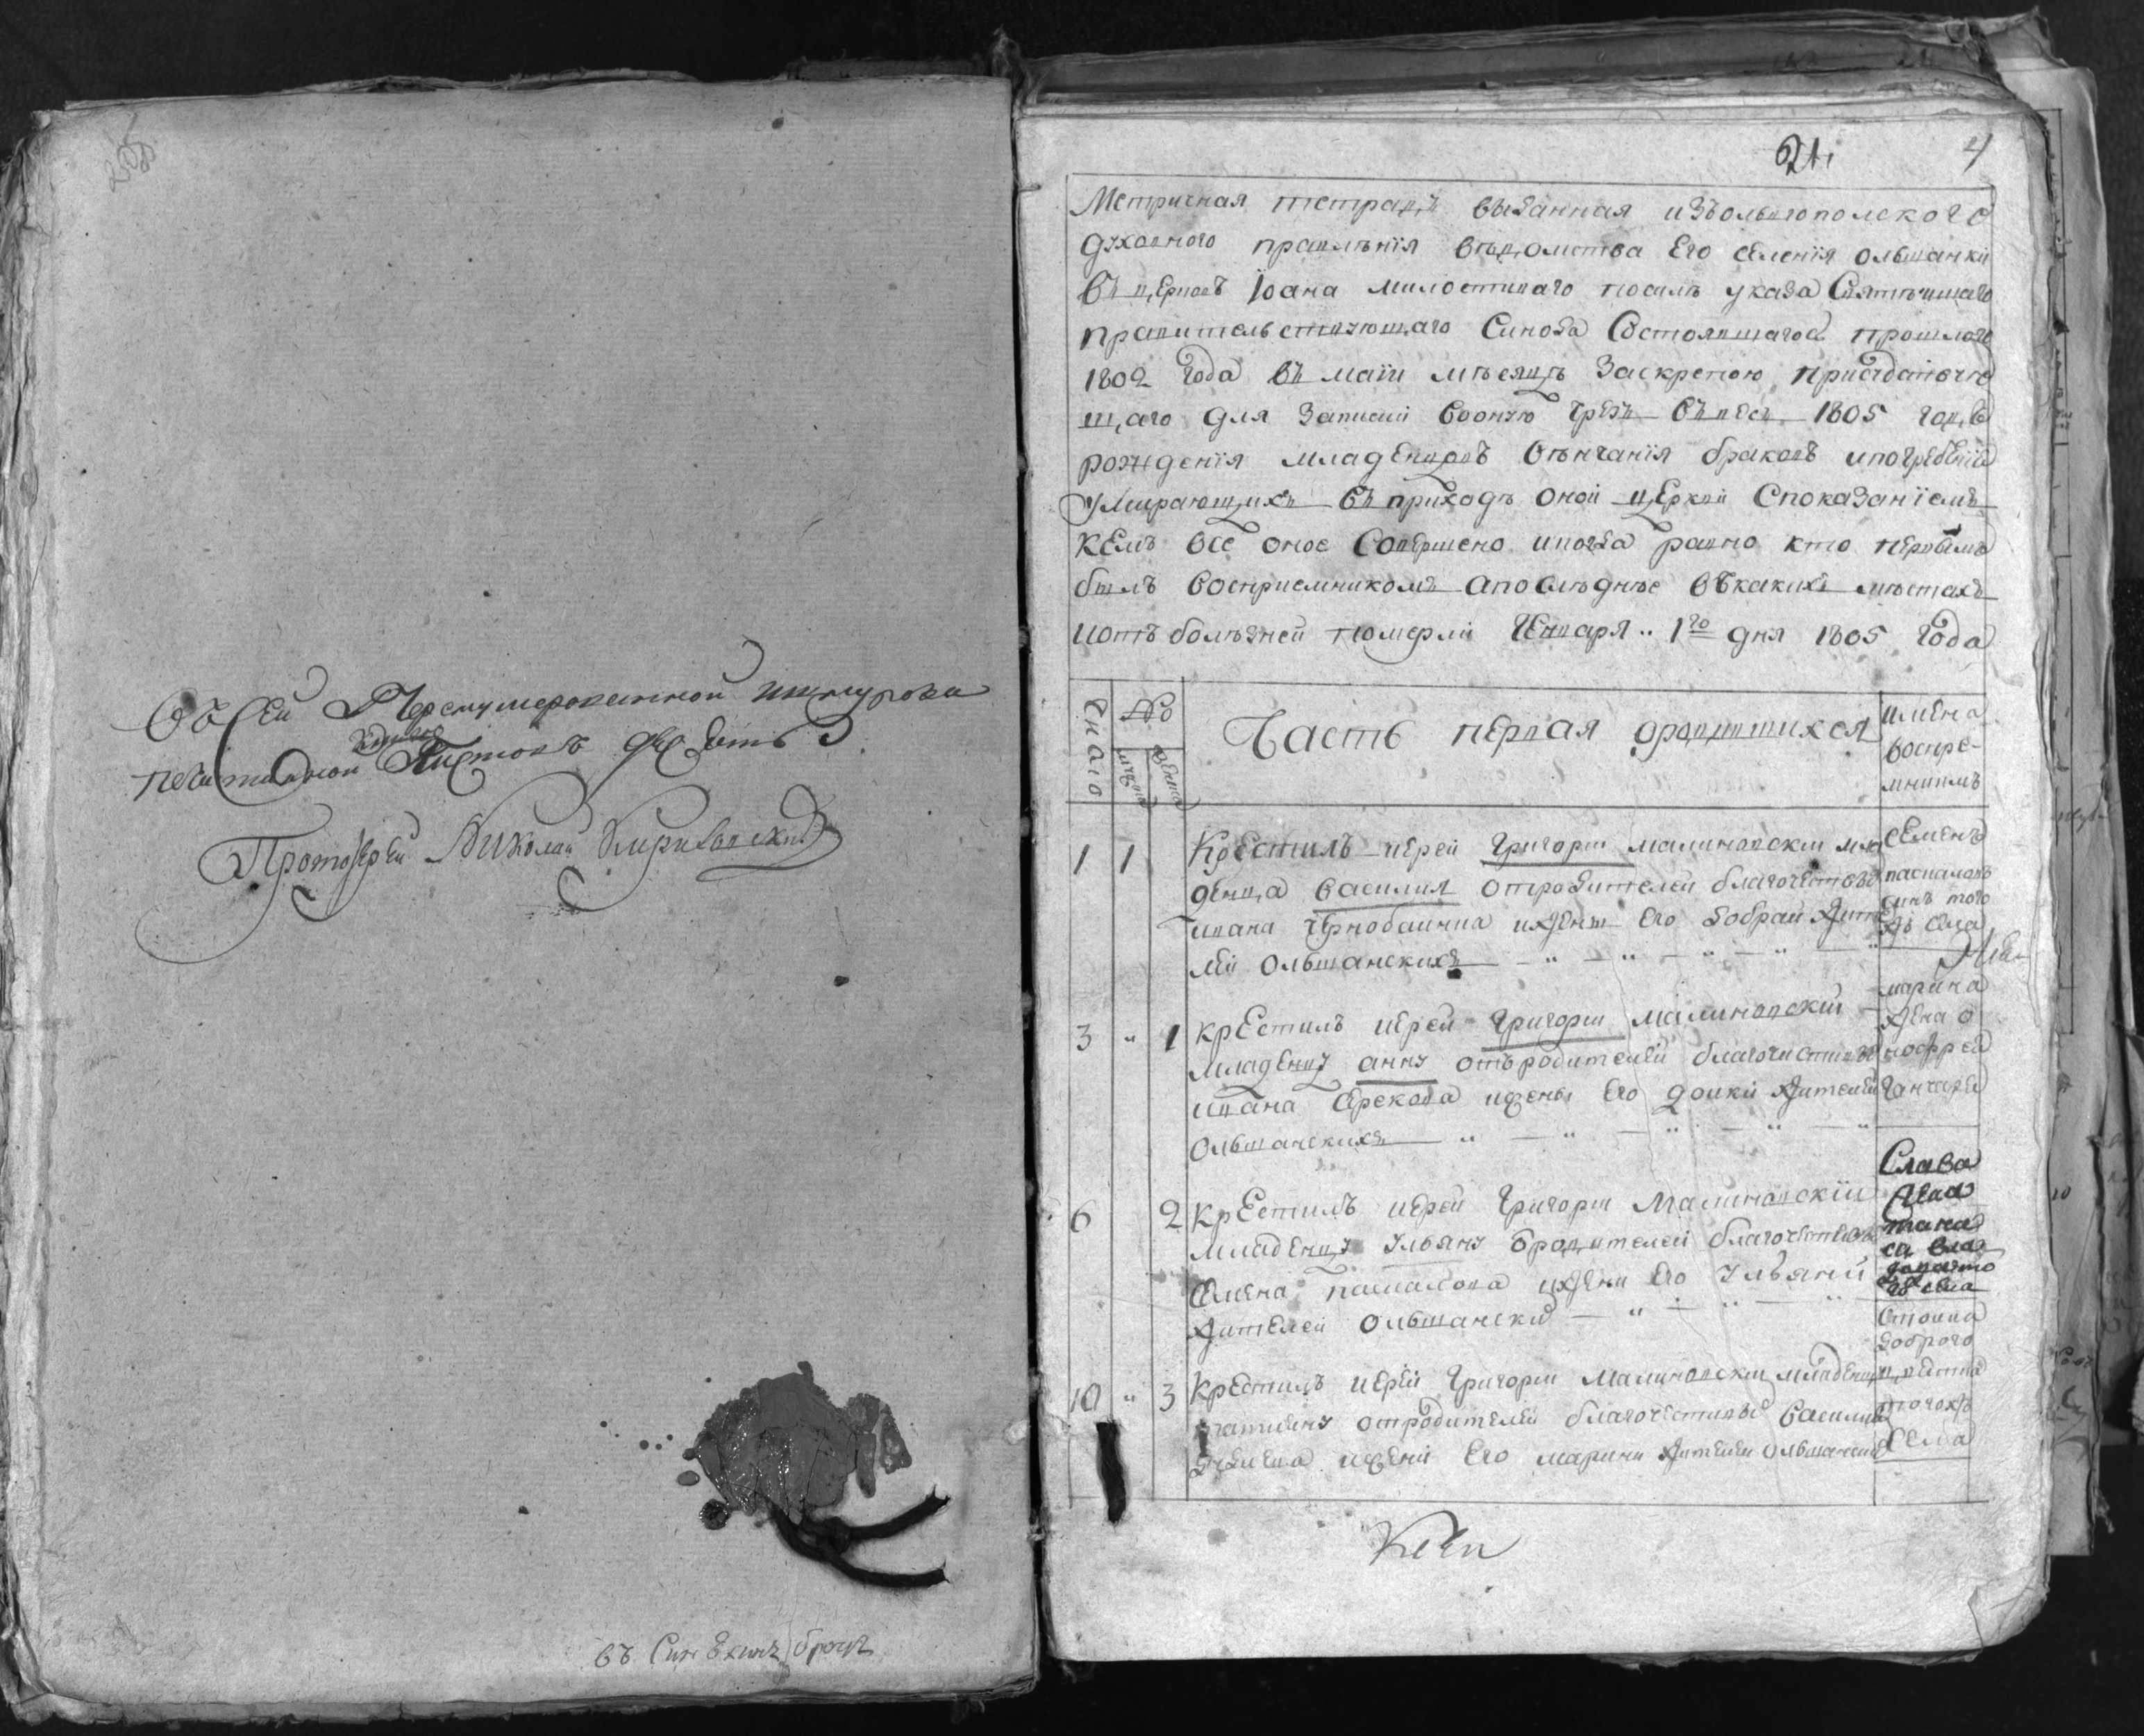 Въ сей Перенумерованной шнурова
книге
печатанной Листовъ десять
Протоіерей Николай
въ
21.
4
Метричная тетрадь выданная изъ ольвіопольского
духовного правленія вѣдомства Его селенія ольшанки
въ церковъ Іоана милостиваго посилѣ указа Святѣишаго
правительствующаго Синода Состоявшагося прошлого
1802 года въ маіи мѣсяцѣ Заскрепою присудствую
щаго для Записки вооную чрезъ весь 1805 годъ
рожденія младенцовъ вѣнчанія браковъ ипогребенія
Умирающихъ въ приходѣ оной церкви Споказаніемъ
кемъ все оное Совершено икогда равно кто первымъ
былъ восприемникомъ апоследнѣе въкакихъ мѣстахъ
иотъ болѣзней померли Генваря 1го дня 1805 года
Число
№
мужеска
женска
Часть первая ородившихся
имена
воспре-
мниковъ
1 1 Крестилъ иерей Григорій малиновскій мла
денца василия отродителей благочестивы
ивана чернобаична ижени его добрай жите
лей ольшанскихъ
семенъ
того
жъ села
3 " 1 крестилъ иерей Григорій малиновскій
младенцу анну отъродителей благочестивы
ивана ижены его жителей
Ольшанскихъ
марина
жена о
нофрея
ганчара
6 2 крестилъ иерей Григорій Малиновскій
младенцу ульяну бродителей благочестивы
Семена ижени его ульяни
жителей ольшански
Слава
жена
танаса
влада
того
жъ села
10 " 3 Крестилъ иерей Григорій малиновскій младенцу
отродителей благочестивы василия
ижени его марини жителей ольшанских
Стоина
доброго
тогожъ
села